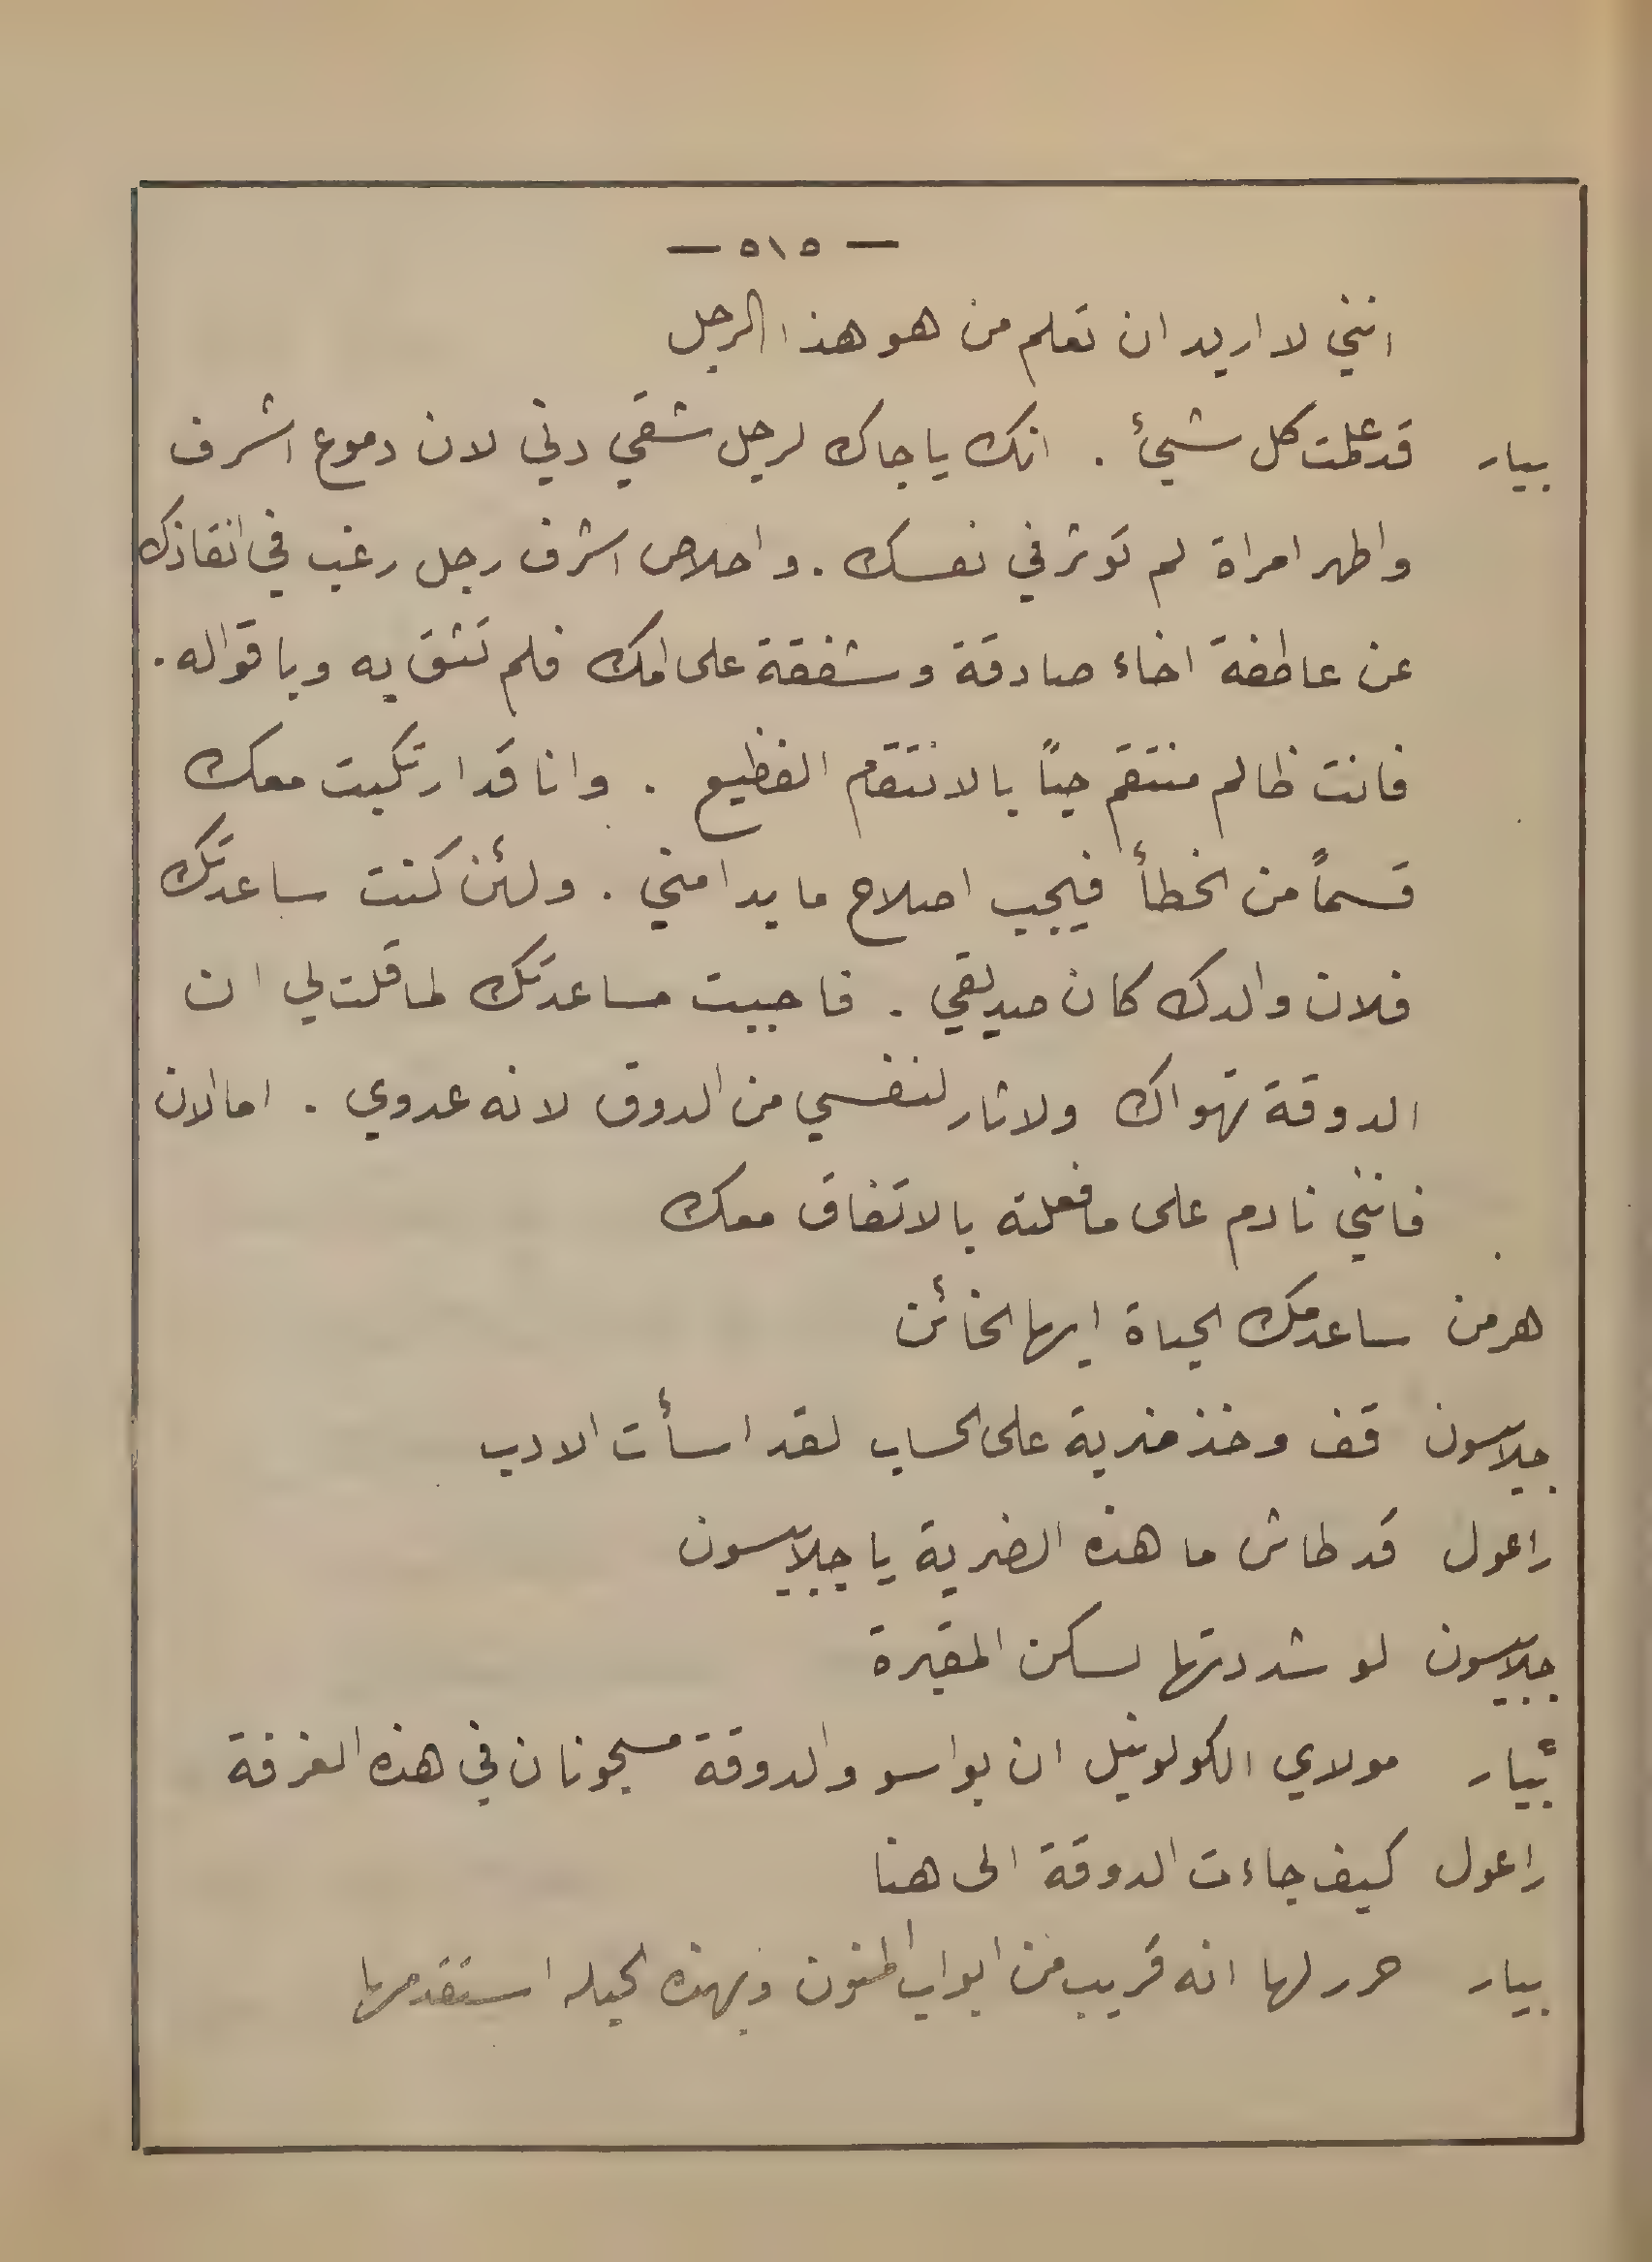 — ٥١٥ —
انني لا اريد ان تعلم من هو هذا الرجل
بيار قد علمت كل شيئ . انك يا جاك لرجل شقي دني لان دموع اشرف
واطهر امراة لم توثر في نفسك . واخلاص اشرف رجل رغب في انقاذك
عن عاطفة اخاء صادقة وشفقة على امك فلم تثق به وباقواله .
فانت ظالم منتقم حباً بالانتقام الفظيع . وانا قد ارتكبت معك
قسماً من الخطأ فيجب اصلاح ما بدا مني . ولئن كنت ساعدتك
فلان والدك كان صديقي . فاحببت مساعدتك لما قلت لي ان
الدوقة تهواك ولاثار لنفسي من الدوق لانه عدوي . اما الان
فانني نادم على ما فعلته بالاتفاق معك
هرمن ساعدمك الحياة ايها الخائن
جلاسون قف وخذ ضربة على الحساب لقد اسأت الادب
راعول قد طاش ما هذه الضربة يا جيلاسون
جيلاسون لو شددتها لسكن المقبرة
بيار مولاي الكولونيل ان بواسو والدوقة مسجونان في هذه الغرفة
راعول كيف جاءت الدوقة الى هنا
بيار حرر لها انه قريب من ابواب المنون وبهذه الحيله استقدمها